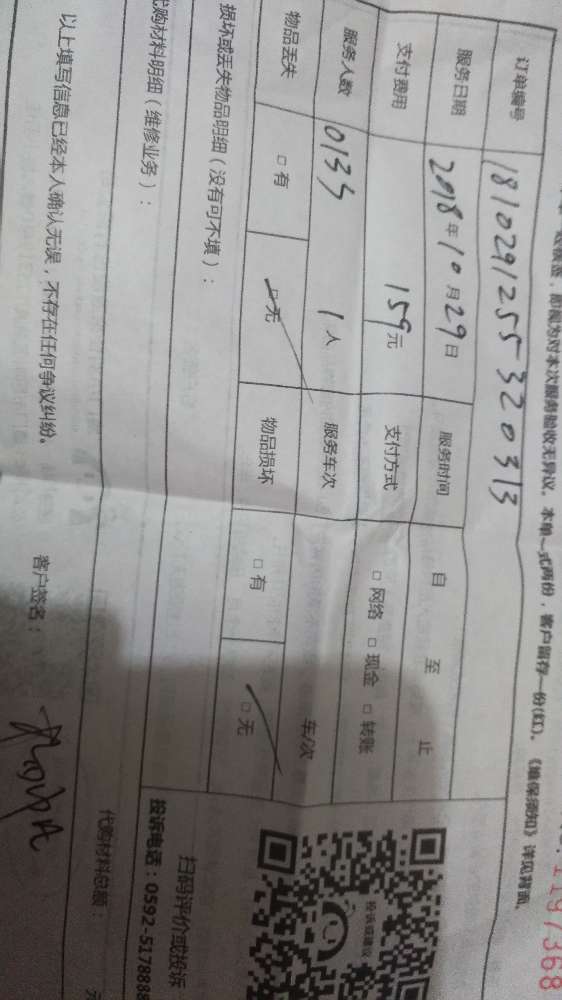 1197368
经核查，即视为对本次服务验收无异议。本单一式两份，客户留存一份(红)。《维保须知》详见背面。
订单编号 181029125532０313
服务日期 2018年10月29日 服务时间 自 至 止
支付费用 159元 支付方式 □ 网络 □ 现金 □ 转账
服务人数 0135 1人 服务车次 车/次
物品丢失 □ 有 □ 无 物品损坏 □ 有 □ 无
损坏或丢失物品明细（没有可不填）：
代购材料明细（维修业务）：
代购材料总额： 元
投诉或建议
扫码评价或投诉
投诉电话：0592-5178888
以上填写信息已经本人确认无误，不存在任何争议纠纷。 客户签名：